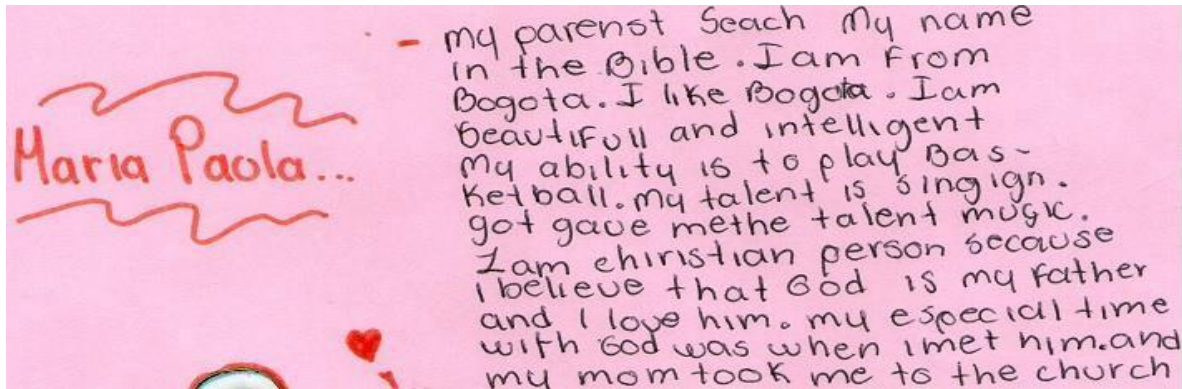 Maria Paola...
- my parenst Seach My name
in the Bible. I am From
Bogota. I like Bogota. I am
beautifull and intelligent
My ability is to play Bas-
ketball. my talent is singign.
got gave methe talent music.
I am chiristian person because
i believe that God is my Father
and I love him. my especial time
with God was when i met him. and
my mom took me to the church